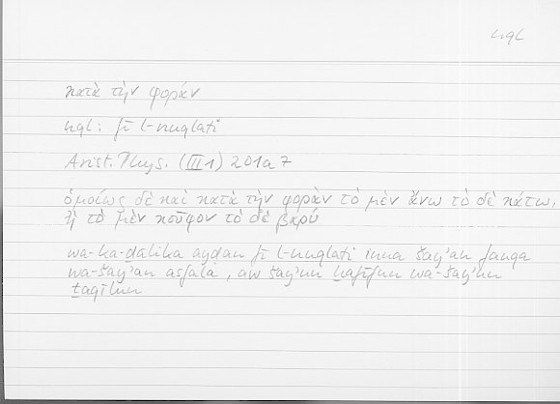 nql
κατὰ τὴν φοράν
nql: fī l-nuqlati
Arist. Phys. (III 1) 201a7
ὁμοίως δὲ καὶ κατὰ τὴν φορὰν τὸ μὲν ἄνω τὸ δὲ κάτω,
ἢ τὸ μὲν κοῦφον τὸ δὲ βαρύ
wa-ka-ḏālika ayḍan fī l-nuqlati inna šay'an fauqa
wa-šay'an asfala, aw šay'un ḫafīfun wa-šay'un
ṯaqīlun